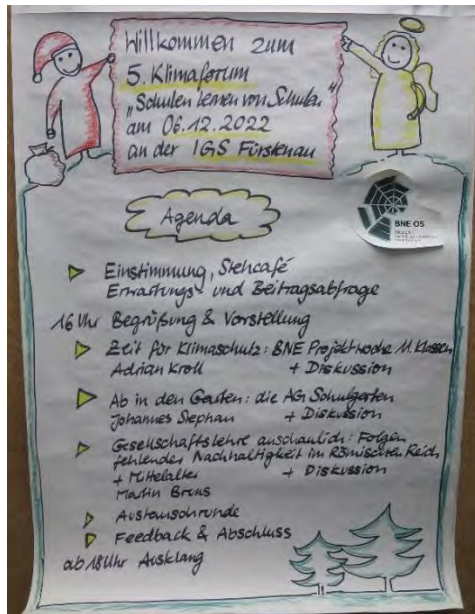 Willkommen zum
5. Klimaforum
"Schulen lernen von Schulen"
am 06.12.2022
an der IGS Fürstenau
Agenda
BNE OS
Einstimmung, Stehcafé
Erwartungs- und Beitragsabfrage
16 Uhr Begrüßung & Vorstellung
Zeit für Klimaschutz: BNE Projektwoche 11. Klassen
Adrian Kroll + Diskussion
Ab in den Garten: die AG Schulgarten
Johannes Stephan + Diskussion
Gesellschaftslehre anschaulich: Folgen
fehlender Nachhaltigkeit im Römischen Reich
+ Mittelalter + Diskussion
Martin Bruns
Austauschrunde
Feedback & Abschluss
ab 18 Uhr Ausklang